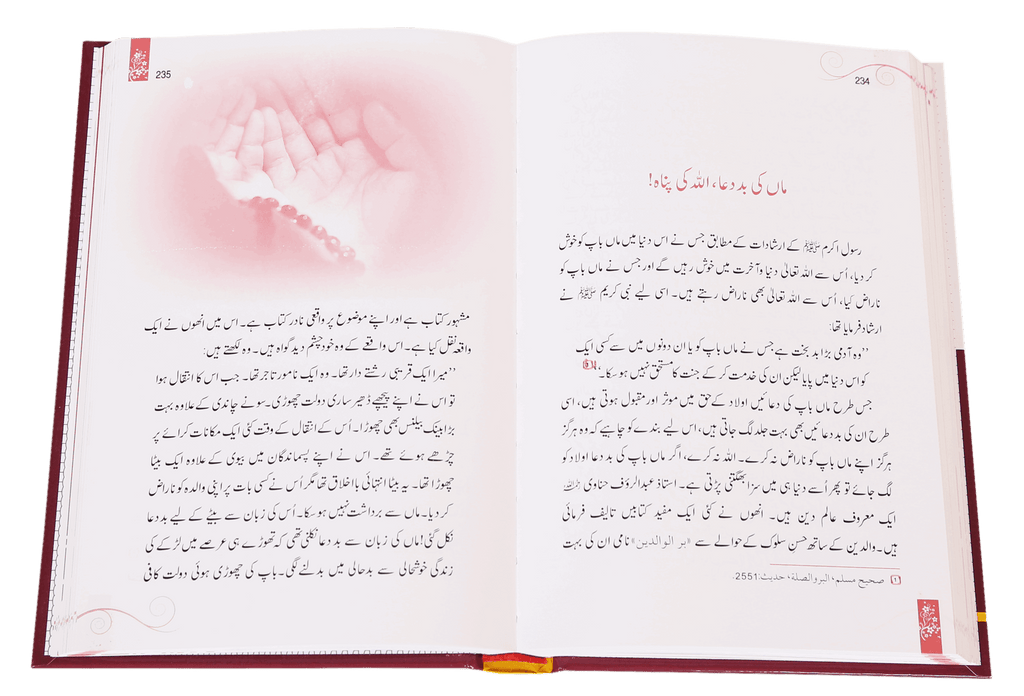 234
ماں کی بددعا، اللہ کی پناہ!
رسول اکرم ﷺ کے ارشادات کے مطابق جس نے اس دنیا میں ماں باپ کو خوش
کر دیا، اُس سے اللہ تعالیٰ دنیا و آخرت میں خوش رہیں گے اور جس نے ماں باپ کو
ناراض کیا، اُس سے اللہ تعالیٰ بھی ناراض رہتے ہیں۔ اسی لیے نبی کریم ﷺ نے
ارشاد فرمایا تھا:
’’وہ آدمی بڑا بد بخت ہے جس نے ماں باپ کو یا ان دونوں میں سے کسی ایک
کو اس دنیا میں پایا لیکن ان کی خدمت کر کے جنت کا مستحق نہیں ہو سکا۔‘‘
جس طرح ماں باپ کی دعائیں اولاد کے حق میں موثر اور مقبول ہوتی ہیں، اسی
طرح ان کی بددعائیں بھی بہت جلد لگ جاتی ہیں، اس لیے بندے کو چاہیے کہ وہ ہرگز
ہرگز اپنے ماں باپ کو ناراض نہ کرے۔ اللہ نہ کرے، اگر ماں باپ کی بددعا اولاد کو
لگ جائے تو پھر اُسے دنیا ہی میں سزا بھگتنی پڑتی ہے۔ استاذ عبدالرؤف حناوی
ایک معروف عالم دین ہیں۔ انھوں نے کئی ایک مفید کتابیں تالیف فرمائی
ہیں۔ والدین کے ساتھ حسنِ سلوک کے حوالے سے «بر الوالدین» نامی ان کی بہت
صحیح مسلم، البر والصلة، حدیث:2551.
235
مشہور کتاب ہے اور اپنے موضوع پر واقعی نادر کتاب ہے۔ اس میں انھوں نے ایک
واقعہ نقل کیا ہے۔ اس واقعے کے وہ خود چشم دید گواہ ہیں۔ وہ لکھتے ہیں:
’’میرا ایک قریبی رشتے دار تھا۔ وہ ایک نامور تاجر تھا۔ جب اس کا انتقال ہوا
تو اس نے اپنے پیچھے ڈھیر ساری دولت چھوڑی۔ سونے چاندی کے علاوہ بہت
بڑا بینک بیلنس بھی چھوڑا۔ اُس کے انتقال کے وقت کئی ایک مکانات کرائے پر
چڑھے ہوئے تھے۔ اس نے اپنے پسماندگان میں بیوی کے علاوہ ایک بیٹا
چھوڑا تھا۔ یہ بیٹا انتہائی بااخلاق تھا مگر اُس نے کسی بات پر اپنی والدہ کو ناراض
کر دیا۔ ماں سے برداشت نہیں ہو سکا۔ اُس کی زبان سے بیٹے کے لیے بددعا
نکل گئی! ماں کی زبان سے بددعا نکلنی تھی کہ تھوڑے ہی عرصے میں لڑکے کی
زندگی خوشحالی سے بدحالی میں بدلنے لگی۔ باپ کی چھوڑی ہوئی دولت کافی